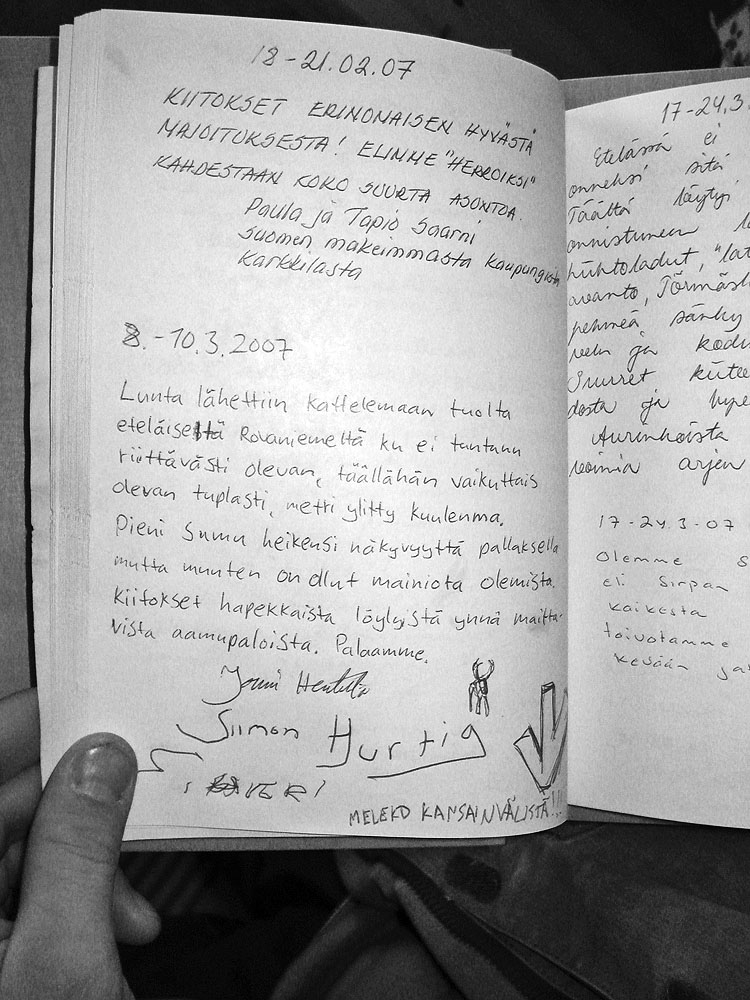 18-21.02.07
KIITOKSET ERINONAISEN HYVÄSTÄ
MAJOITUKSESTA! ELINME "HERROIKSI"
KAHDESTAAN KOKO SUURTA ASUNTOA.
Paula ja Tapio Saarni
Suomen makeimmasta kaupungista
Karkkilasta
8.-10.3.2007
Lunta lähettiin kattelemaan tuolta
eteläiseltä Rovaniemeltä ku ei tuntunu
riittävästi olevan, täällähän vaikuttais
olevan tuplasti, metri ylitty kuulemma.
Pieni sumu heikensi näkyvyyttä pallaksella
mutta muuten on ollut mainiota olemista.
Kiitokset hapekkaista löylyistä ynnä maitta-
vista aamupaloista. Palaamme.
Jouni
Siimon Hurtig
VERI
MELEKO KANSAINVÄLISTÄ!!!
17-24.3.
Etelässä ei
onneksi sitä
Täältä löytyi
onnistuneen
hiihtoladut, "lat
avanto, Törmäsh
pehmeä sänky
ja kodu
Suuret kiitt
dosta ja hype
Aurinkoista
voimia arjen
17-24.3-07
Olemme S
eli Sirpan
kaikesta
toivotamme
kevään jat